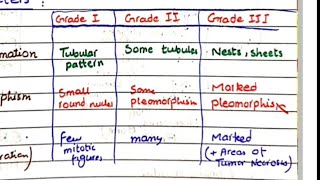 Grade I Grade II Grade III
mation Tubular Some tubules Nests, sheets
pattern
phism Small Some Marked
round nuclei pleomorphism pleomorphism
Few many Marked
mitotic (+ Areas of
ration) figures Tumor Necrosis)